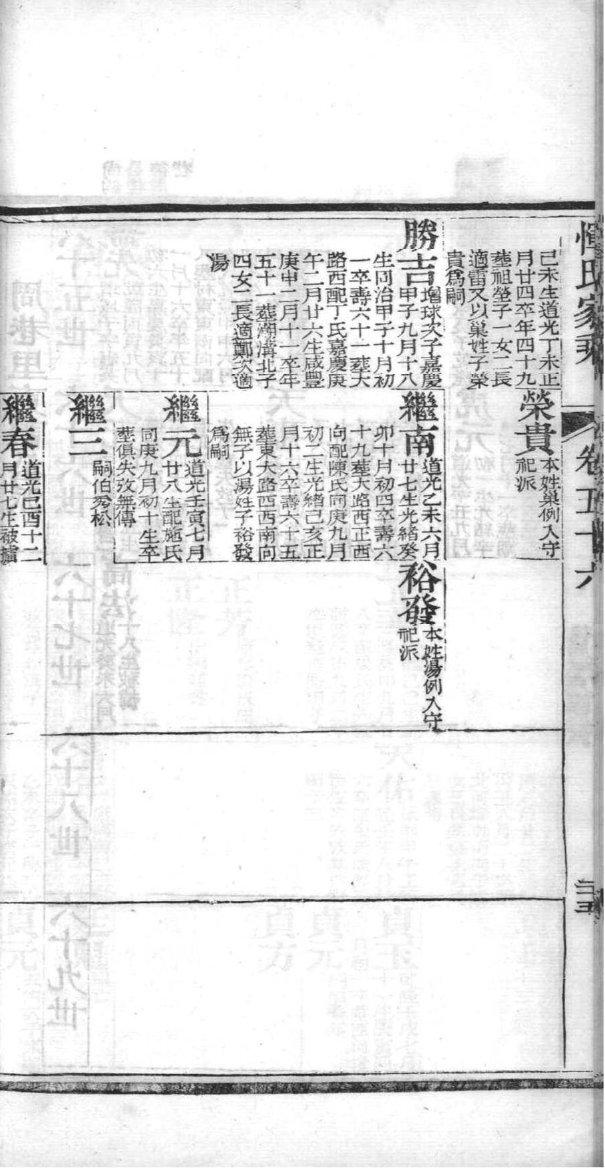 惲氏家乘
卷五十六
三五
己未生道光丁未正
月廿四卒年四十九
葬祖塋子一女二長
適雷又以巢姓子榮
貴爲嗣
榮貴
本姓巢例入守
祀派
勝吉
增球次子嘉慶
甲子九月十八
生同治甲子十月初
一卒壽六十一葬大
路西配丁氏嘉慶庚
午二月廿六生咸豐
庚申二月十一卒年
五十一葬潮溝北子
四女二長適鄭次適
湯
繼南
道光乙未六月
廿七生光緒癸
卯十月初四卒壽六
十九葬大路西正西
向配陳氏同庚九月
初二生光緒己亥正
月十六卒壽六十五
葬東大路西西南向
無子以湯姓子裕發
爲嗣
裕發
本姓湯例入守
祀派
繼元
道光壬寅七月
廿八生配施氏
同庚九月初十生卒
葬俱失攷無傳
繼三
嗣伯秀松
繼春
道光己酉十二
月廿七生被擄